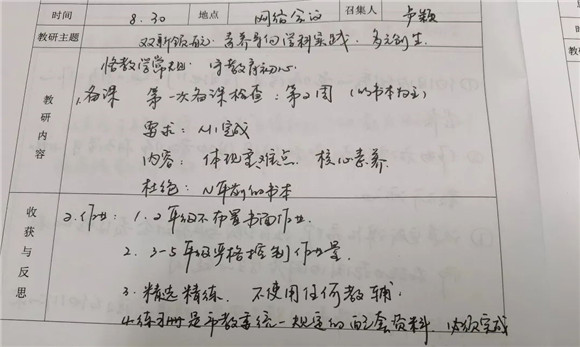 时间 8.30 地点 网络会议 召集人 卢颖
教研主题 双新领航 素养导向学科实践，多元创生
悟教学常规 守教育初心
教研内容
1. 备课 第一次备课检查：第2周（以书本为主）
要求：A1完成
内容：体现重难点 核心素养
杜绝：N年前的书本
收获与反思
2. 作业：1.2年级不布置书面作业.
2. 3-5年级严格控制作业量.
3. 精选精练. 不使用任何教辅.
4. 练习册是市教委统一规定的配套资料 必须完成